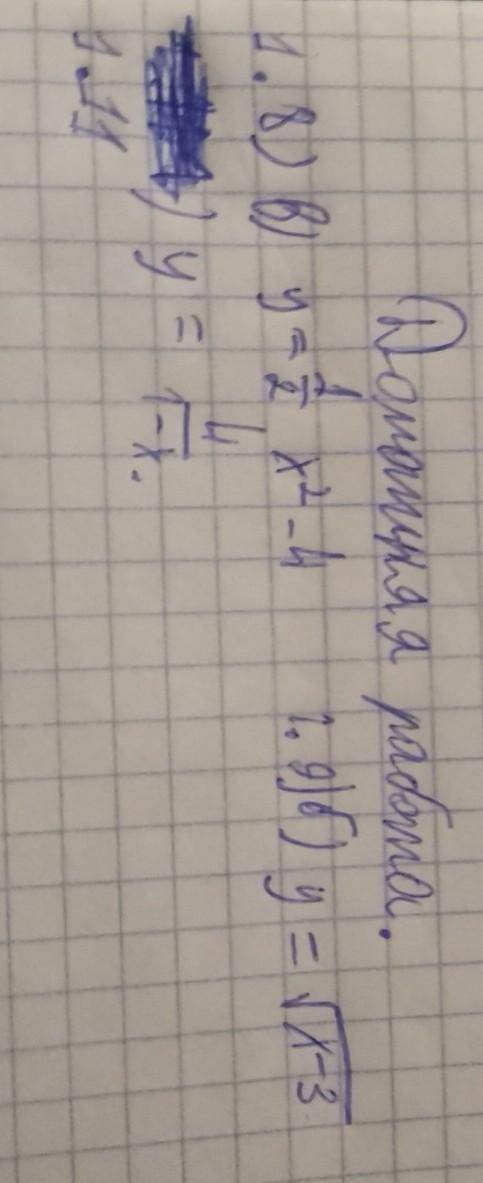 Домашняя работа.
1.8) в) y = 1/2 x² - 4 1.9) б) y = √x-3
) y = 4/1-x.
1.11